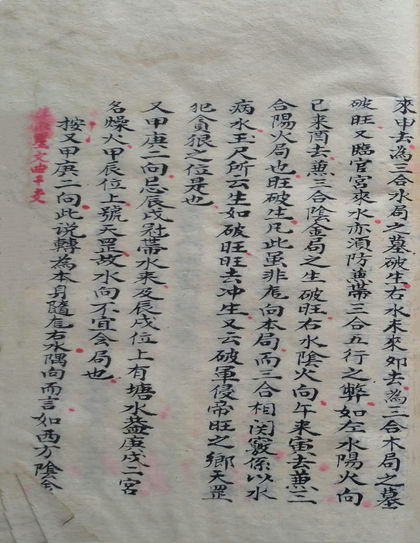 來申去為三合水局之墓破生右水未來卯去為三合木局之墓
破旺又臨官宮來水亦須防蕙帶三合五行之弊如左水陽火向
已來酉去蕙三合陰金局之生破旺右水陰火向午來寅去蕙三
合陽火局也旺破生凡此虽非危向本局而三合相関竅係以水
病水玉尺所云生如破旺旺去冲生又云破軍侵帝旺之鄉天罡
犯貪狠之位是也
又甲庚二向忌辰戌冠帶水来及辰戌位上有塘水蓋庚戌二宮
名燥火甲辰位上號天罡故水向不宜会局也
按又甲庚二向此说轉為本身隨危右水隅向而言如西方陰金